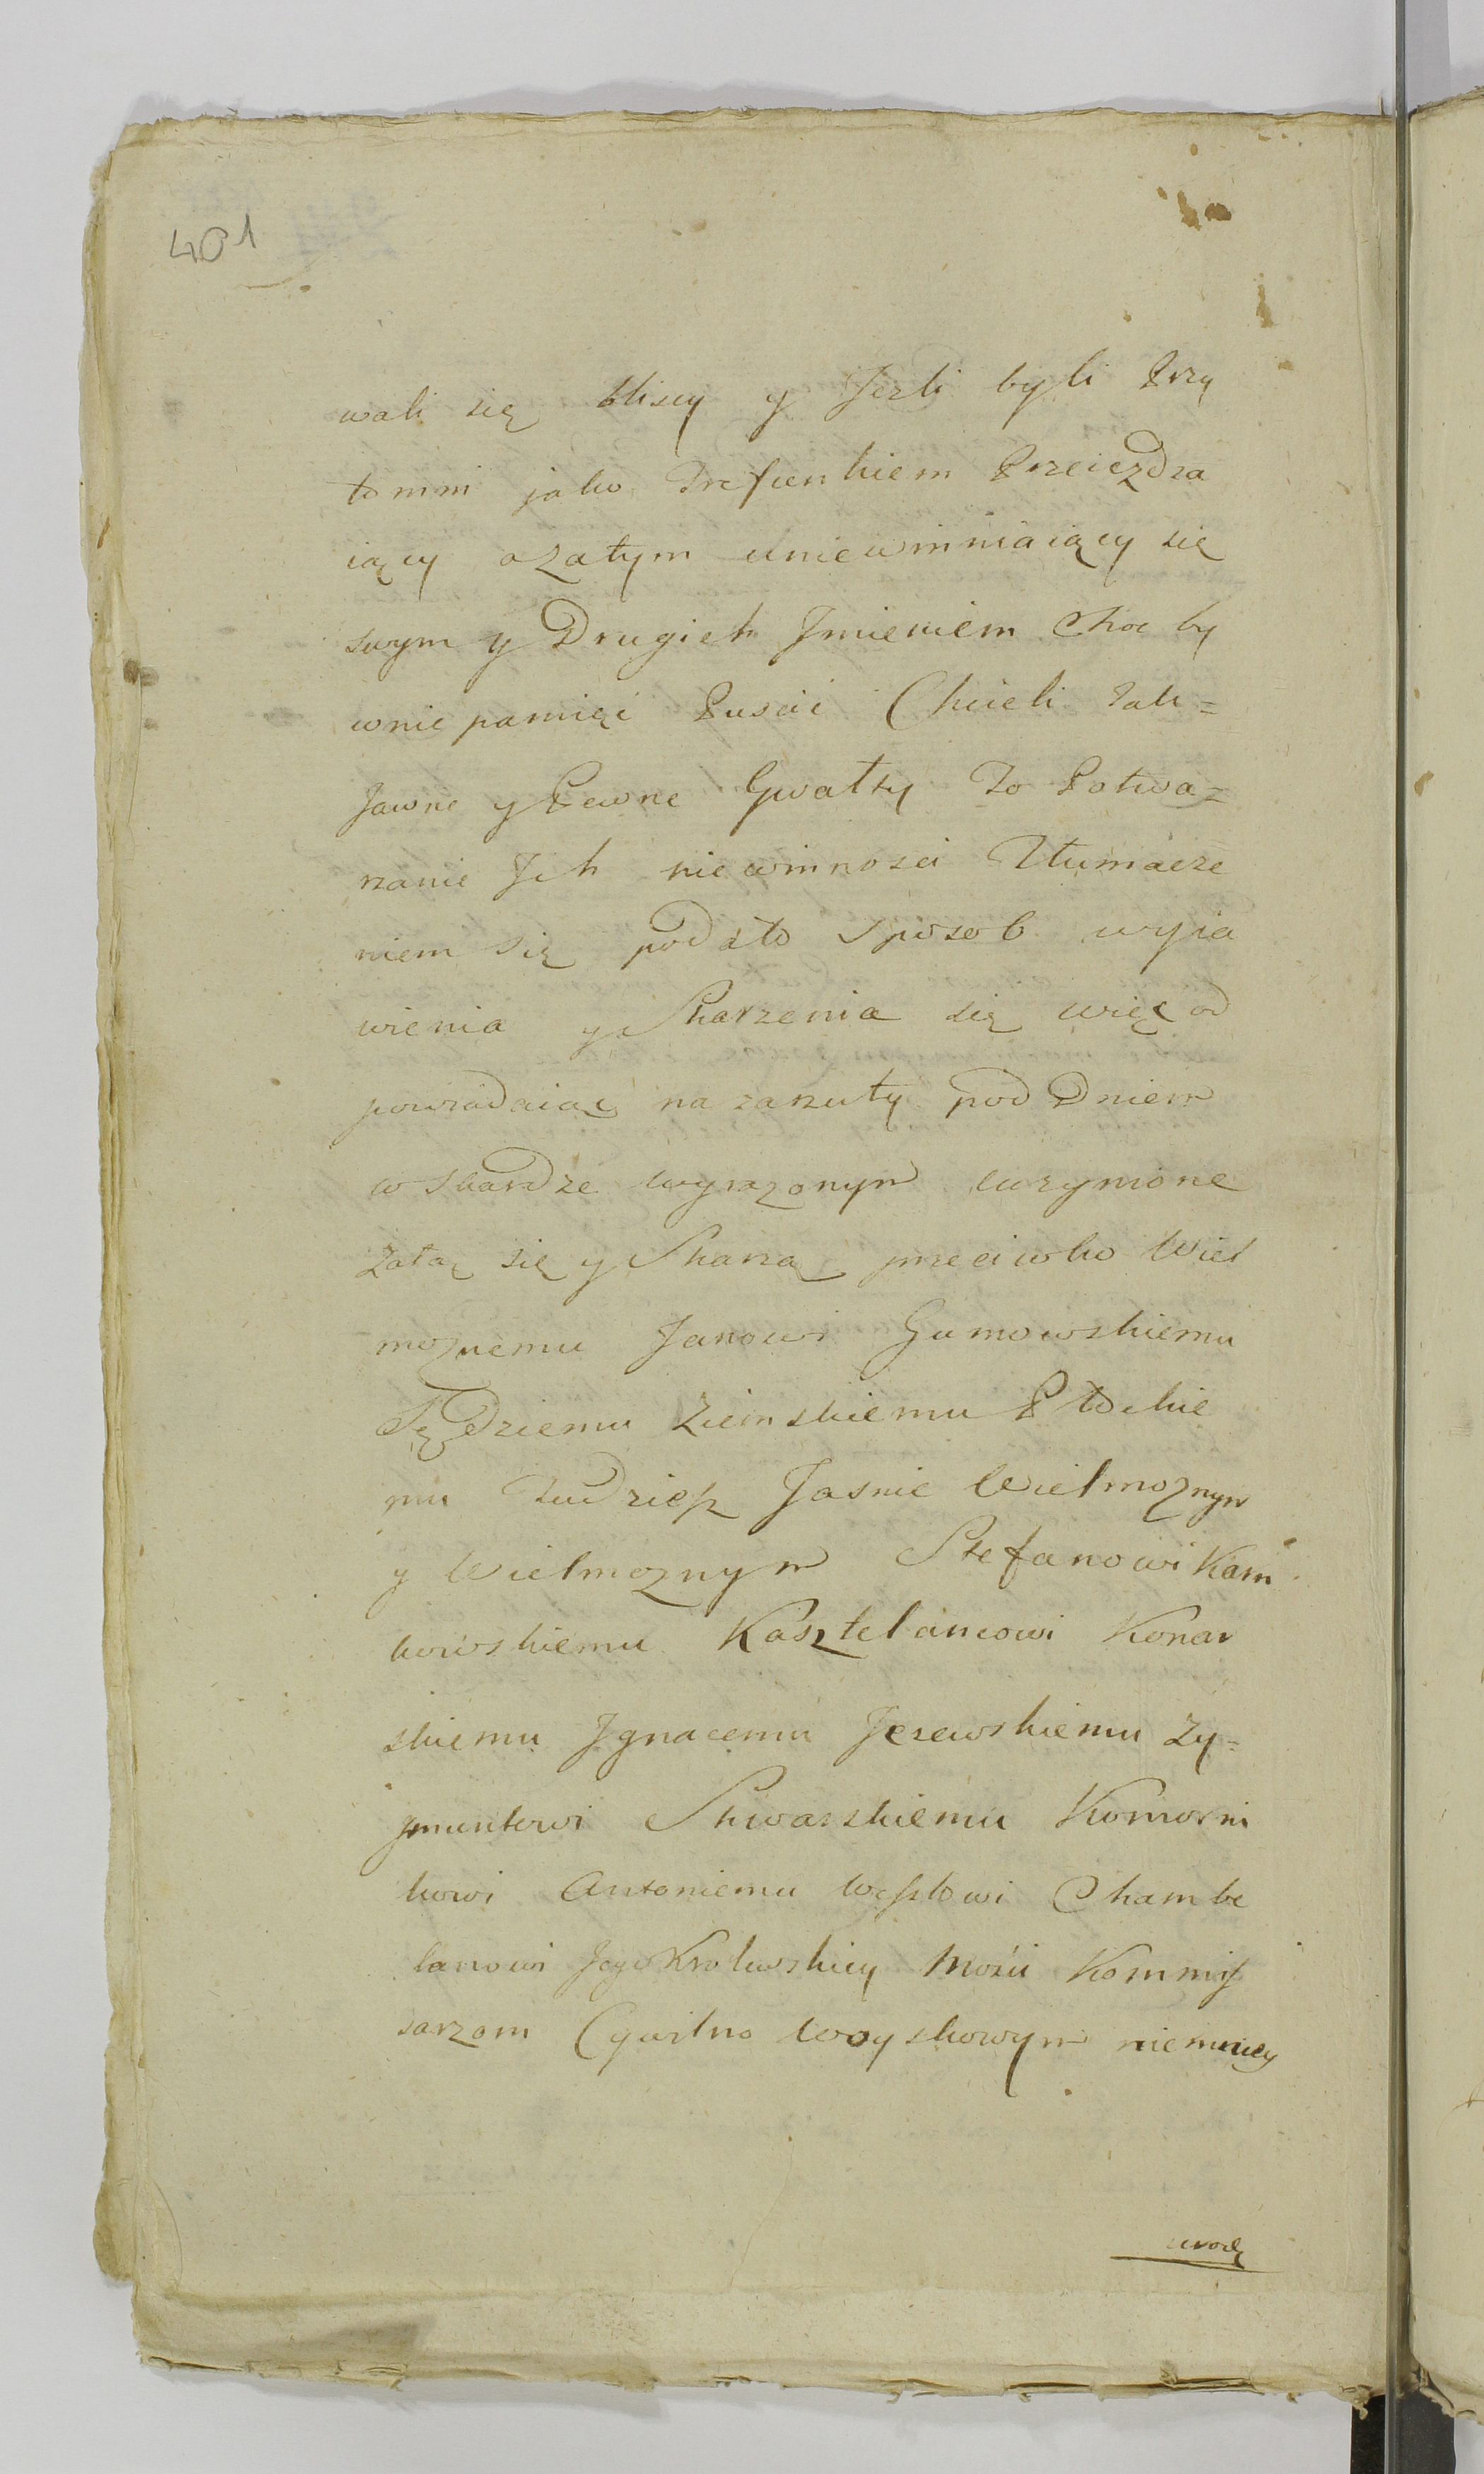 401
wali się bliscy y Jezli byli Przy
tomni jako Trefunkiem Przeiezdza
iący a zatym uniewinniaiący się
swym y Drugich Jmieniem Choc by
wniepamięć Puscić Chcieli tak=
Jawne y Pewne Gwałty To Potwa=
rzanie Jch niewinnosci Tłumacze
niem się podało sposob wyia
wienia y Skarzenia się więc od
powiadaiąc na zarzuty pod Dniem
w skardze wyrazonym uczynione
żalą się y Skarzą przeciwko Wiel
moznemu Janowi Gumowskiemu
Sędziemu Ziemskiemu Płockie
mu tudziesz Jasnie Wielmoznym
y Wielmoznym Stefanowi Karn
kowskiemu Kasztelancowi Konar
skiemu Jgnacemu Jezewskiemu Zy=
gmuntowi Skwarskiemu Komorni
kowi Antoniemu Wesslowi Chambe
lanowi Jego Krolewskiey Mości Kommis
sarzom Cywilno Woyskowym niemniey
urodz